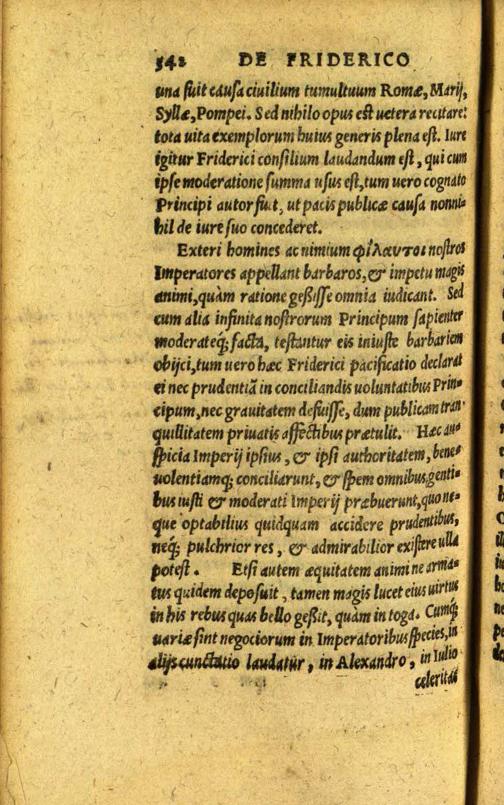 342 DE FRIDERICO
una fuit causa ciuilium tumultuum Romæ, Marij,
Syllæ, Pompei. Sed nihilo opus est uetera recitare:
tota uita exemplorum huius generis plena est. Iure
igitur Friderici consilium laudandum est, qui cum
ipse moderatione summa usus est, tum uero cognato
Principi autor fuit, ut pacis publicæ causa nonni-
hil de iure suo concederet.
Exteri homines ac nimium φίλαυτοι nostros
Imperatores appellant barbaros, & impetu magis
animi, quàm ratione gessisse omnia iudicant. Sed
cum alia infinita nostrorum Principum sapienter
moderateq; facta, testantur eis iniuste barbariem
obijci, tum uero hæc Friderici pacificatio declarat
ei nec prudentiã in conciliandis uoluntatibus Prin-
cipum, nec grauitatem defuisse, dum publicam tran-
quillitatem priuatis affectibus prætulit. Hæc au-
spicia Imperij ipsius, & ipsi authoritatem, bene-
uolentiamq; conciliarunt, & spem omnibus genti-
bus iusti & moderati Imperij præbuerunt, quo ne-
que optabilius quidquam accidere prudentibus,
neq; pulchrior res, & admirabilior existere ulla
potest. Etsi autem æquitatem animi ne arma-
tus quidem deposuit, tamen magis lucet eius uirtus
in his rebus quas bello gessit, quàm in toga. Cumq;
uariæ sint negociorum in Imperatoribus species, in
alijs cunctatio laudatur, in Alexandro, in Iulio
celeritas